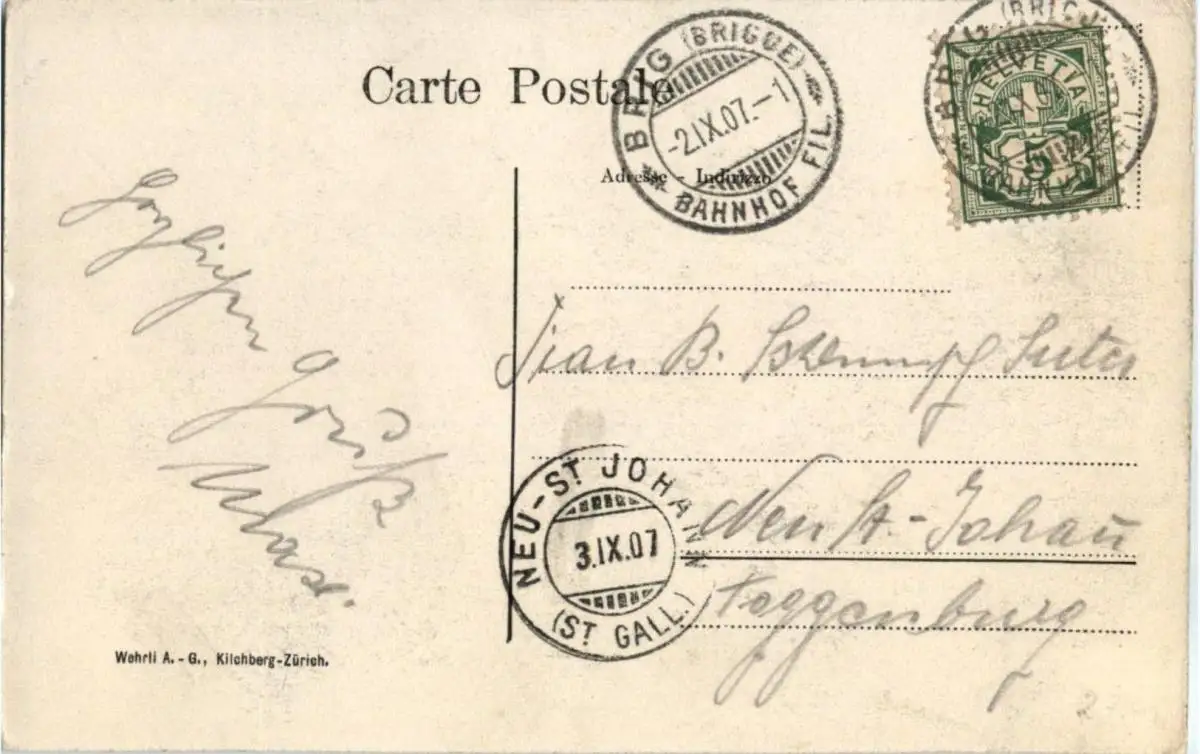 Carte Postale
Adresse - Indirizzo
BRIG (BRIGUE)
-2.IX.07.-1
BAHNHOF FIL.
BRIG (BRIG
HELVETIA
5
BAHNHOF FIL.
Herzlichen
Gruß
B.
Suter
Neu St. Johann
Toggenburg
NEU-ST JOHANN
3.IX.07
(ST GALL.)
Wehrli A.-G., Kilchberg-Zürich.